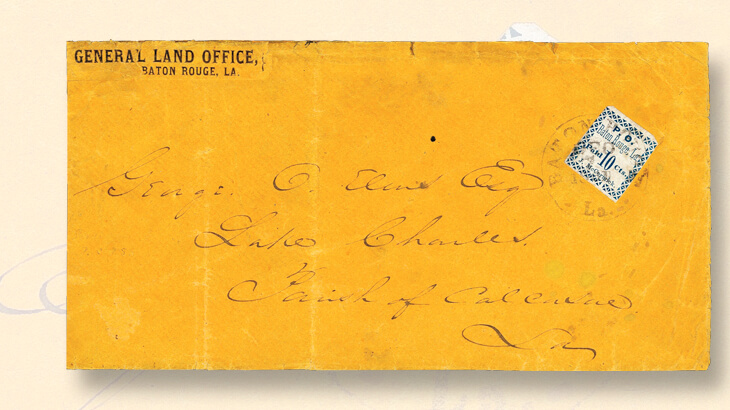 GENERAL LAND OFFICE,
BATON ROUGE, LA.
P. O.
Baton Rouge, La.
Paid 10 Cts.
McCormick.
BATON
La.
George O. Elms Esq
Lake Charles.
Parish of Calcasue
La